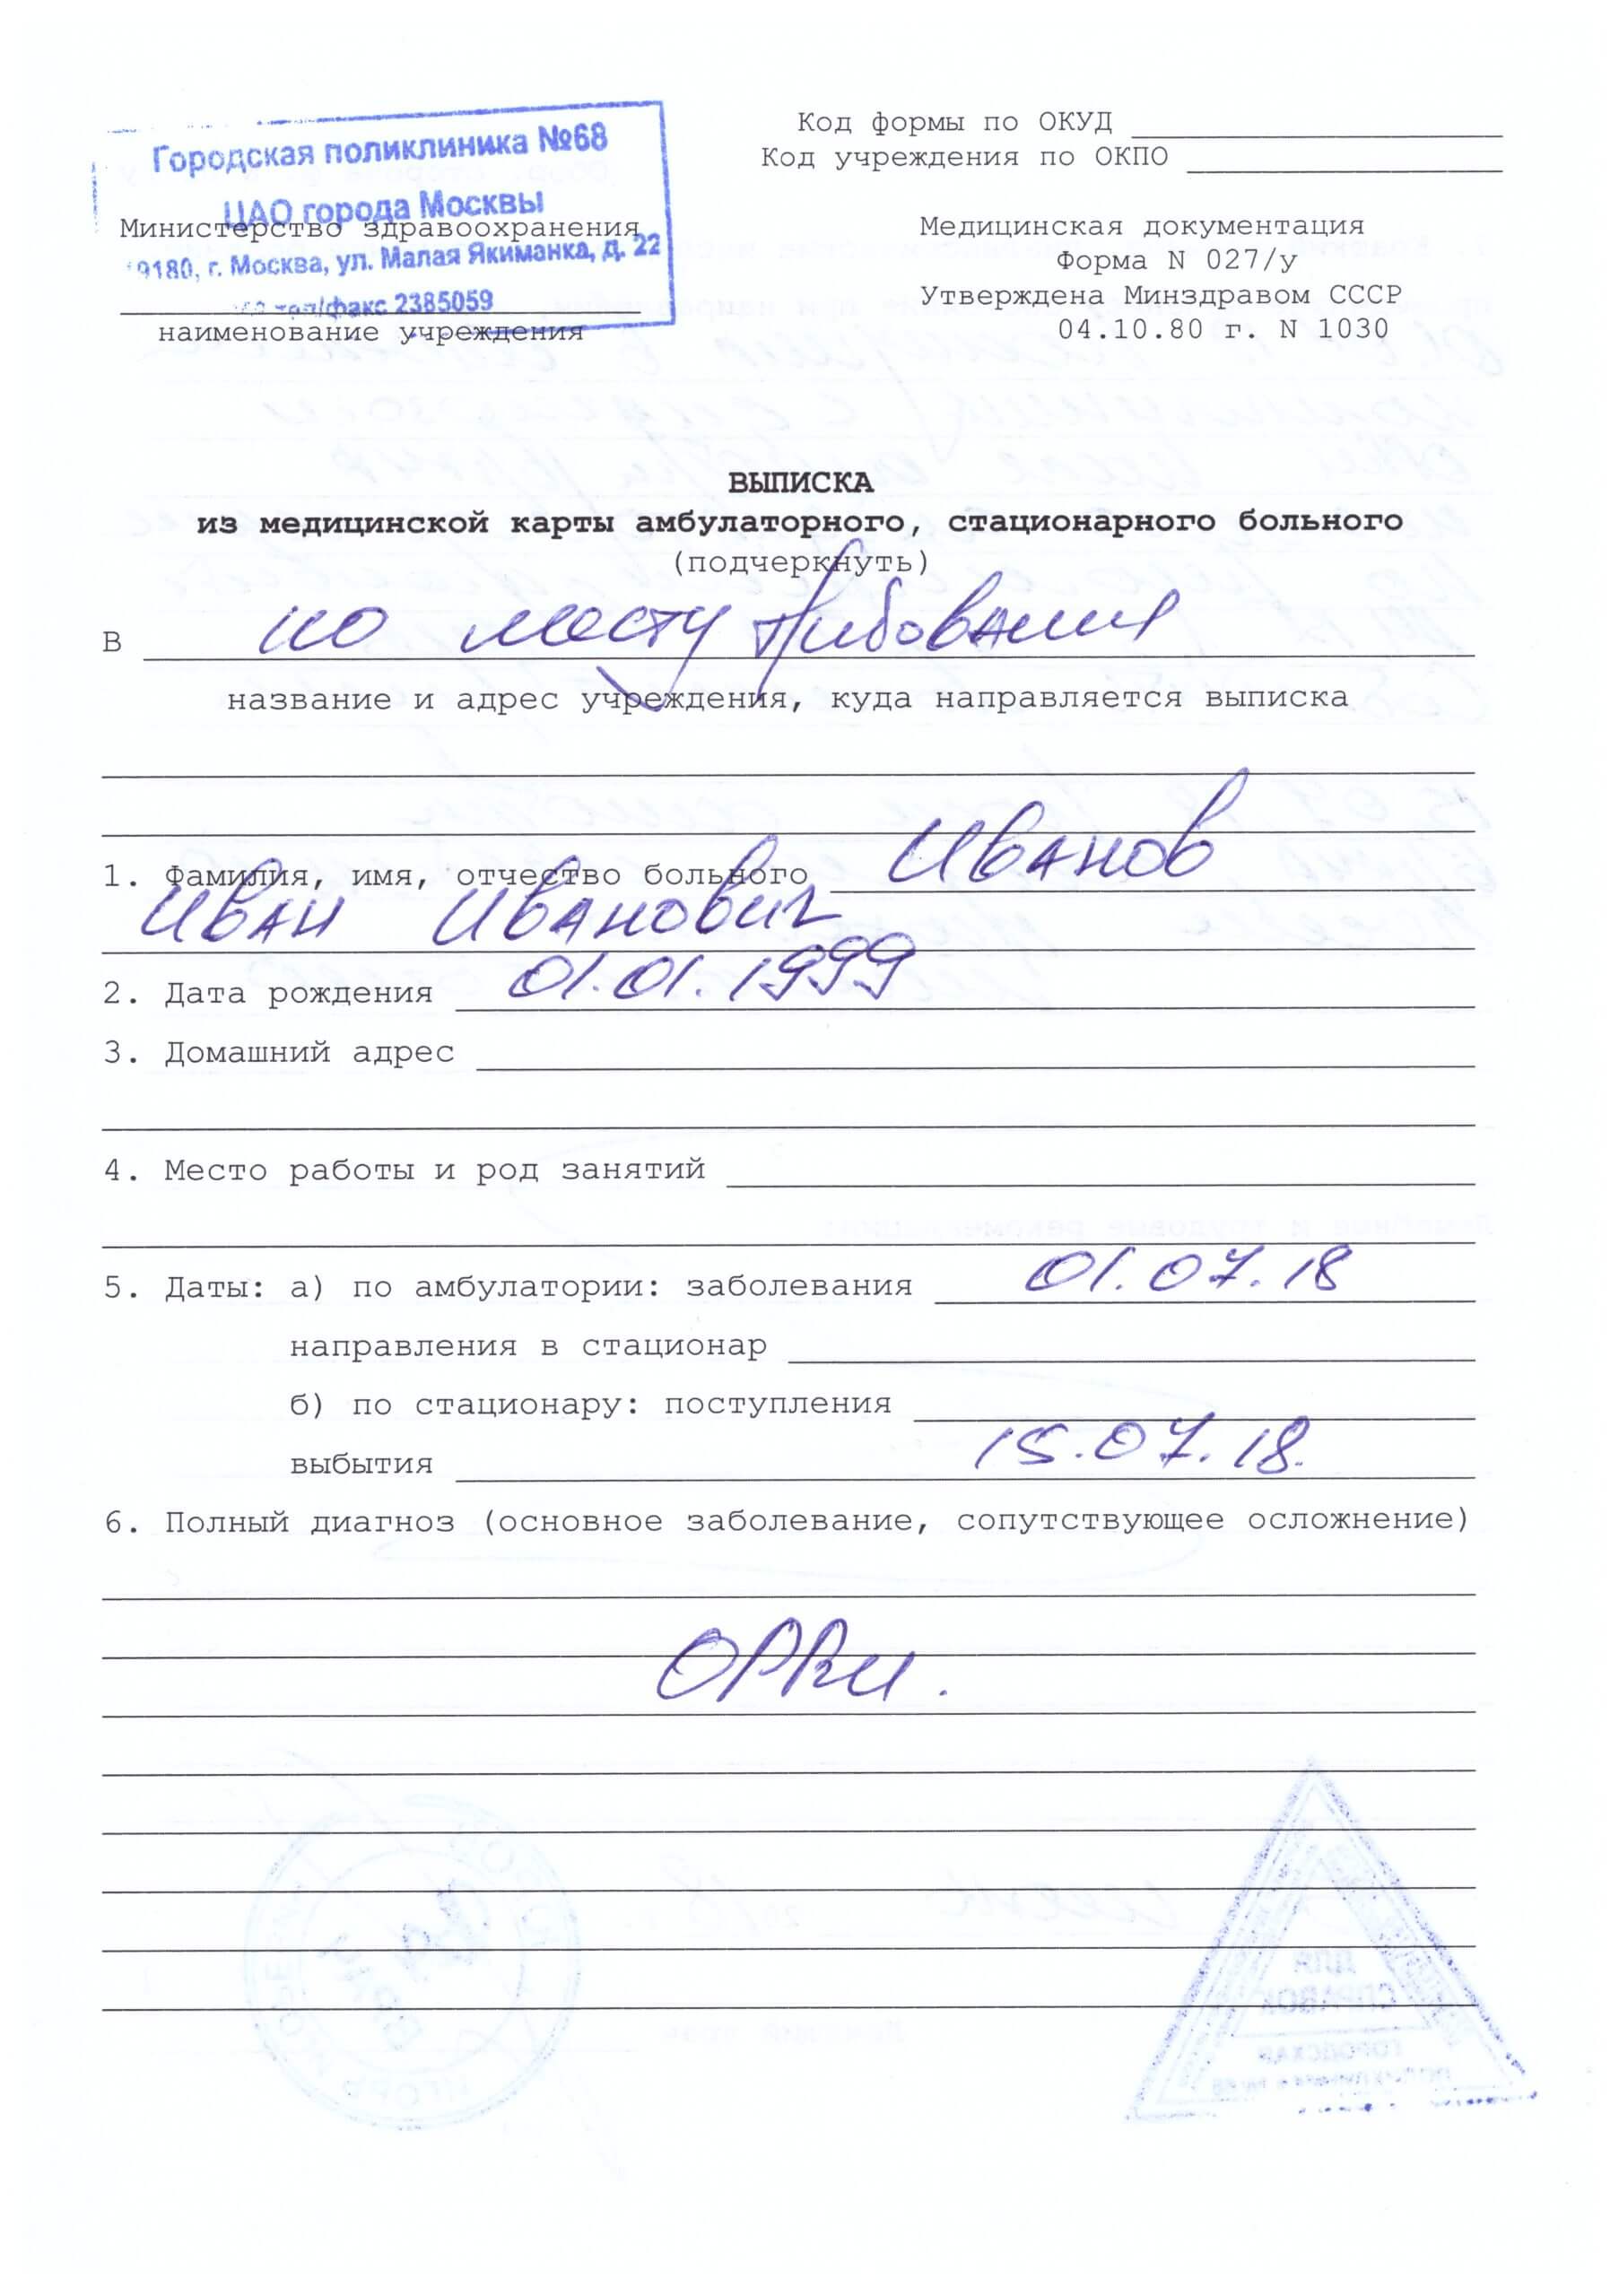 Городская поликлиника №68
ЦАО города Москвы
9180, г. Москва, ул. Малая Якиманка, д. 22
тел/факс 2385059
Министерство здравоохранения
наименование учреждения
Код формы по ОКУД
Код учреждения по ОКПО
Медицинская документация
Форма N 027/у
Утверждена Минздравом СССР
04.10.80 г. N 1030
ВЫПИСКА
из медицинской карты амбулаторного, стационарного больного
(подчеркнуть)
В по месту требования
название и адрес учреждения, куда направляется выписка
1. Фамилия, имя, отчество больного Иванов
Иван Иванович
2. Дата рождения 01.01.1999
3. Домашний адрес
4. Место работы и род занятий
5. Даты: а) по амбулатории: заболевания 01.07.18
направления в стационар
б) по стационару: поступления
выбытия 15.07.18.
6. Полный диагноз (основное заболевание, сопутствующее осложнение)
ОРВИ.
ДЛЯ
СПРАВОК
ГОРОДСКАЯ